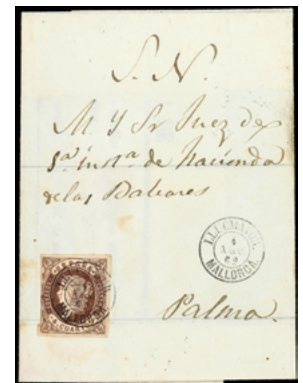 S. N.
M. Y Sr Juez de
1ª instª de Hacienda
de las Baleares
LLUCMAYOR
1
AGO
62
MALLORCA
4 CUARTOS
Palma.